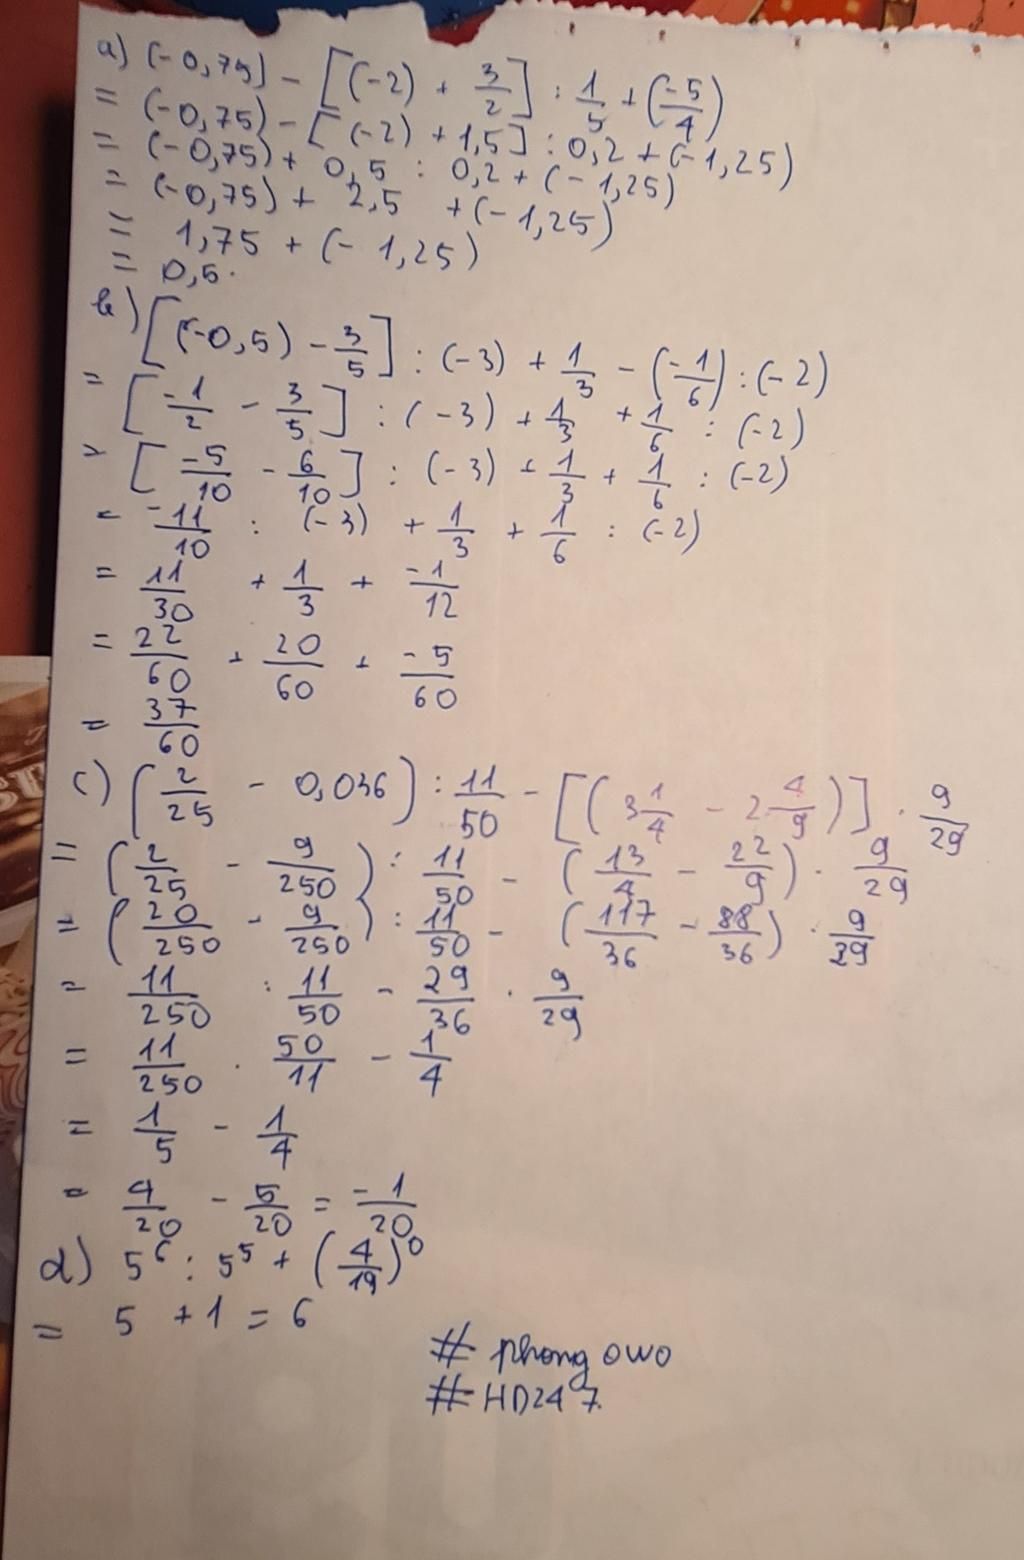 a) (-0,75) - [(-2) + 3/2] : 1/5 + (-5/4)
= (-0,75) - [(-2) + 1,5] : 0,2 + (-1,25)
= (-0,75) + 0,5 : 0,2 + (-1,25)
= (-0,75) + 2,5 + (-1,25)
= 1,75 + (-1,25)
= 0,5.
b) [(-0,5) - 3/5] : (-3) + 1/3 - (-1/6) : (-2)
= [-1/2 - 3/5] : (-3) + 1/3 + 1/6 : (-2)
= [-5/10 - 6/10] : (-3) + 1/3 + 1/6 : (-2)
= -11/10 : (-3) + 1/3 + 1/6 : (-2)
= 11/30 + 1/3 + -1/12
= 22/60 + 20/60 + -5/60
= 37/60
c) (2/25 - 0,036) : 11/50 - [(3 1/4 - 2 4/9)] . 9/29
= (2/25 - 9/250) : 11/50 - (13/4 - 22/9) . 9/29
= (20/250 - 9/250) : 11/50 - (117/36 - 88/36) . 9/29
= 11/250 : 11/50 - 29/36 . 9/29
= 11/250 . 50/11 - 1/4
= 1/5 - 1/4
= 4/20 - 5/20 = -1/20
d) 5⁶ : 5⁵ + (4/19)⁰
= 5 + 1 = 6
# phong owo
# HD247.